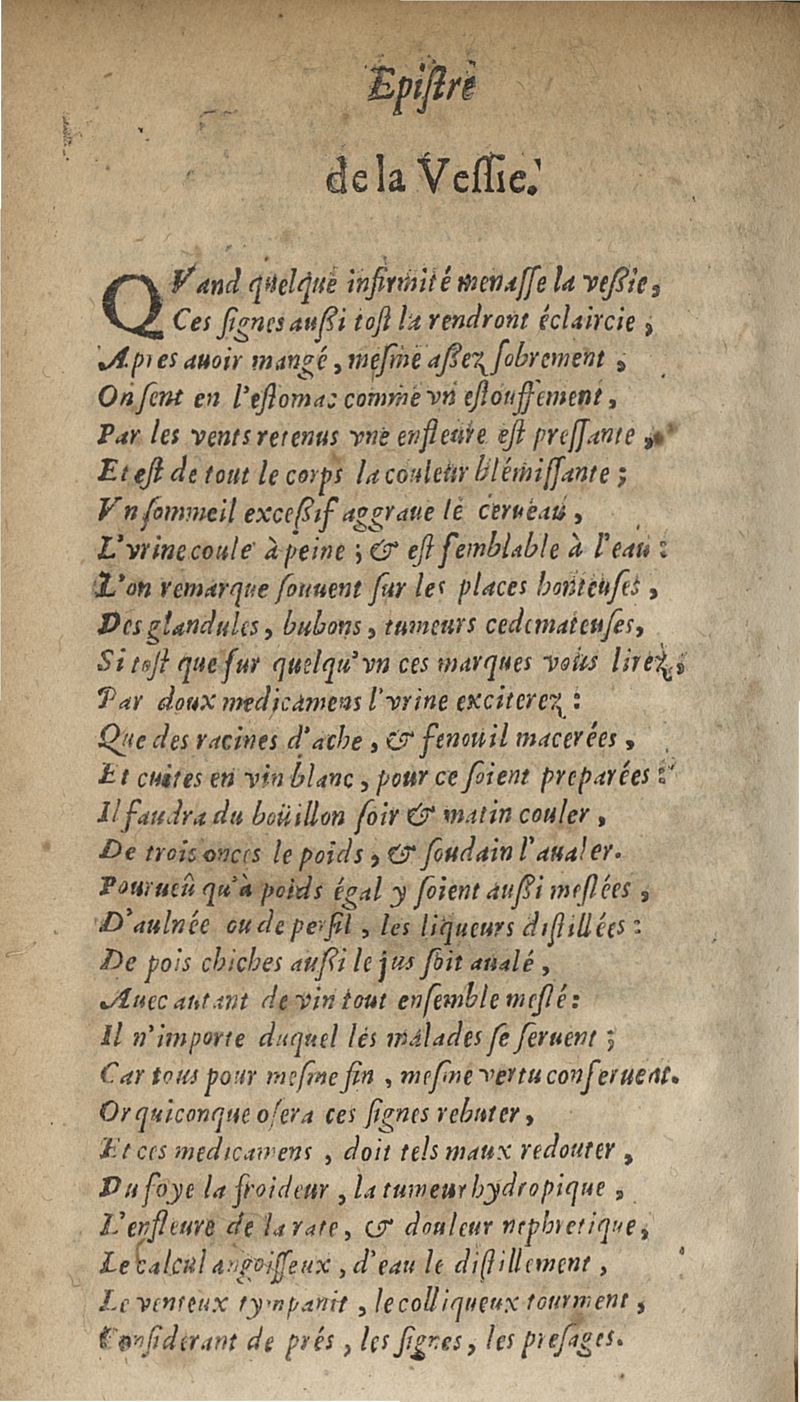 Epistre
de la Vessie.
QVand quelque infirmité menasse la veßie,
Ces signes außi tost la rendront éclaircie,
Apres auoir mangé, mesme aßez sobrement,
On sent en l'estomac comme vn estouffement,
Par les vents retenus vne enfleure est pressante,
Et est de tout le corps la couleur blémissante;
Vn sommeil exceßif aggraue le cerueau,
L'vrine coule à peine; & est semblable à l'eau:
L'on remarque souuent sur les places honteuses,
Des glandules, bubons, tumeurs cedemateuses,
Si tost que sur quelqu'vn ces marques vous lirez,
Par doux medicamens l'vrine exciterez:
Que des racines d'ache, & fenouil macerées,
Et cuites en vin blanc, pour ce soient preparées:
Il faudra du boüillon soir & matin couler,
De trois onces le poids, & soudain l'aualer.
Pourueû qu'à poids égal y soient außi meslées,
D'aulnée ou de persil, les liqueurs distillées:
De pois chiches außi le jus soit aualé,
Auec autant de vin tout ensemble meslé:
Il n'importe duquel les malades se seruent;
Car tous pour mesme fin, mesme vertu conseruent.
Or quiconque osera ces signes rebuter,
Et ces medicamens, doit tels maux redouter,
Du foye la froideur, la tumeur hydropique,
L'enfleure de la rate, & douleur nephretique,
Le calcul angoisseux, d'eau le distillement,
Le venteux tympanit, le colliqueux tourment,
Considerant de prés, les signes, les presages.